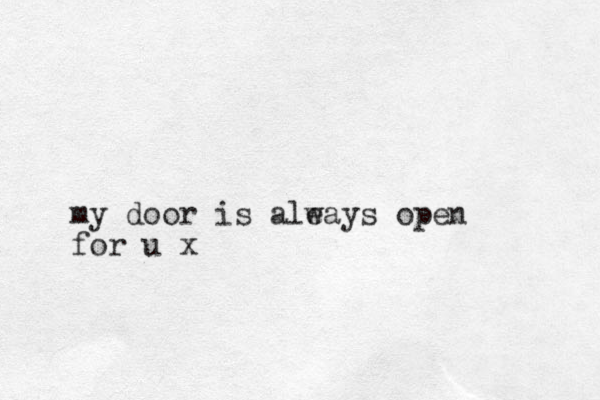 my door is always open
for u x